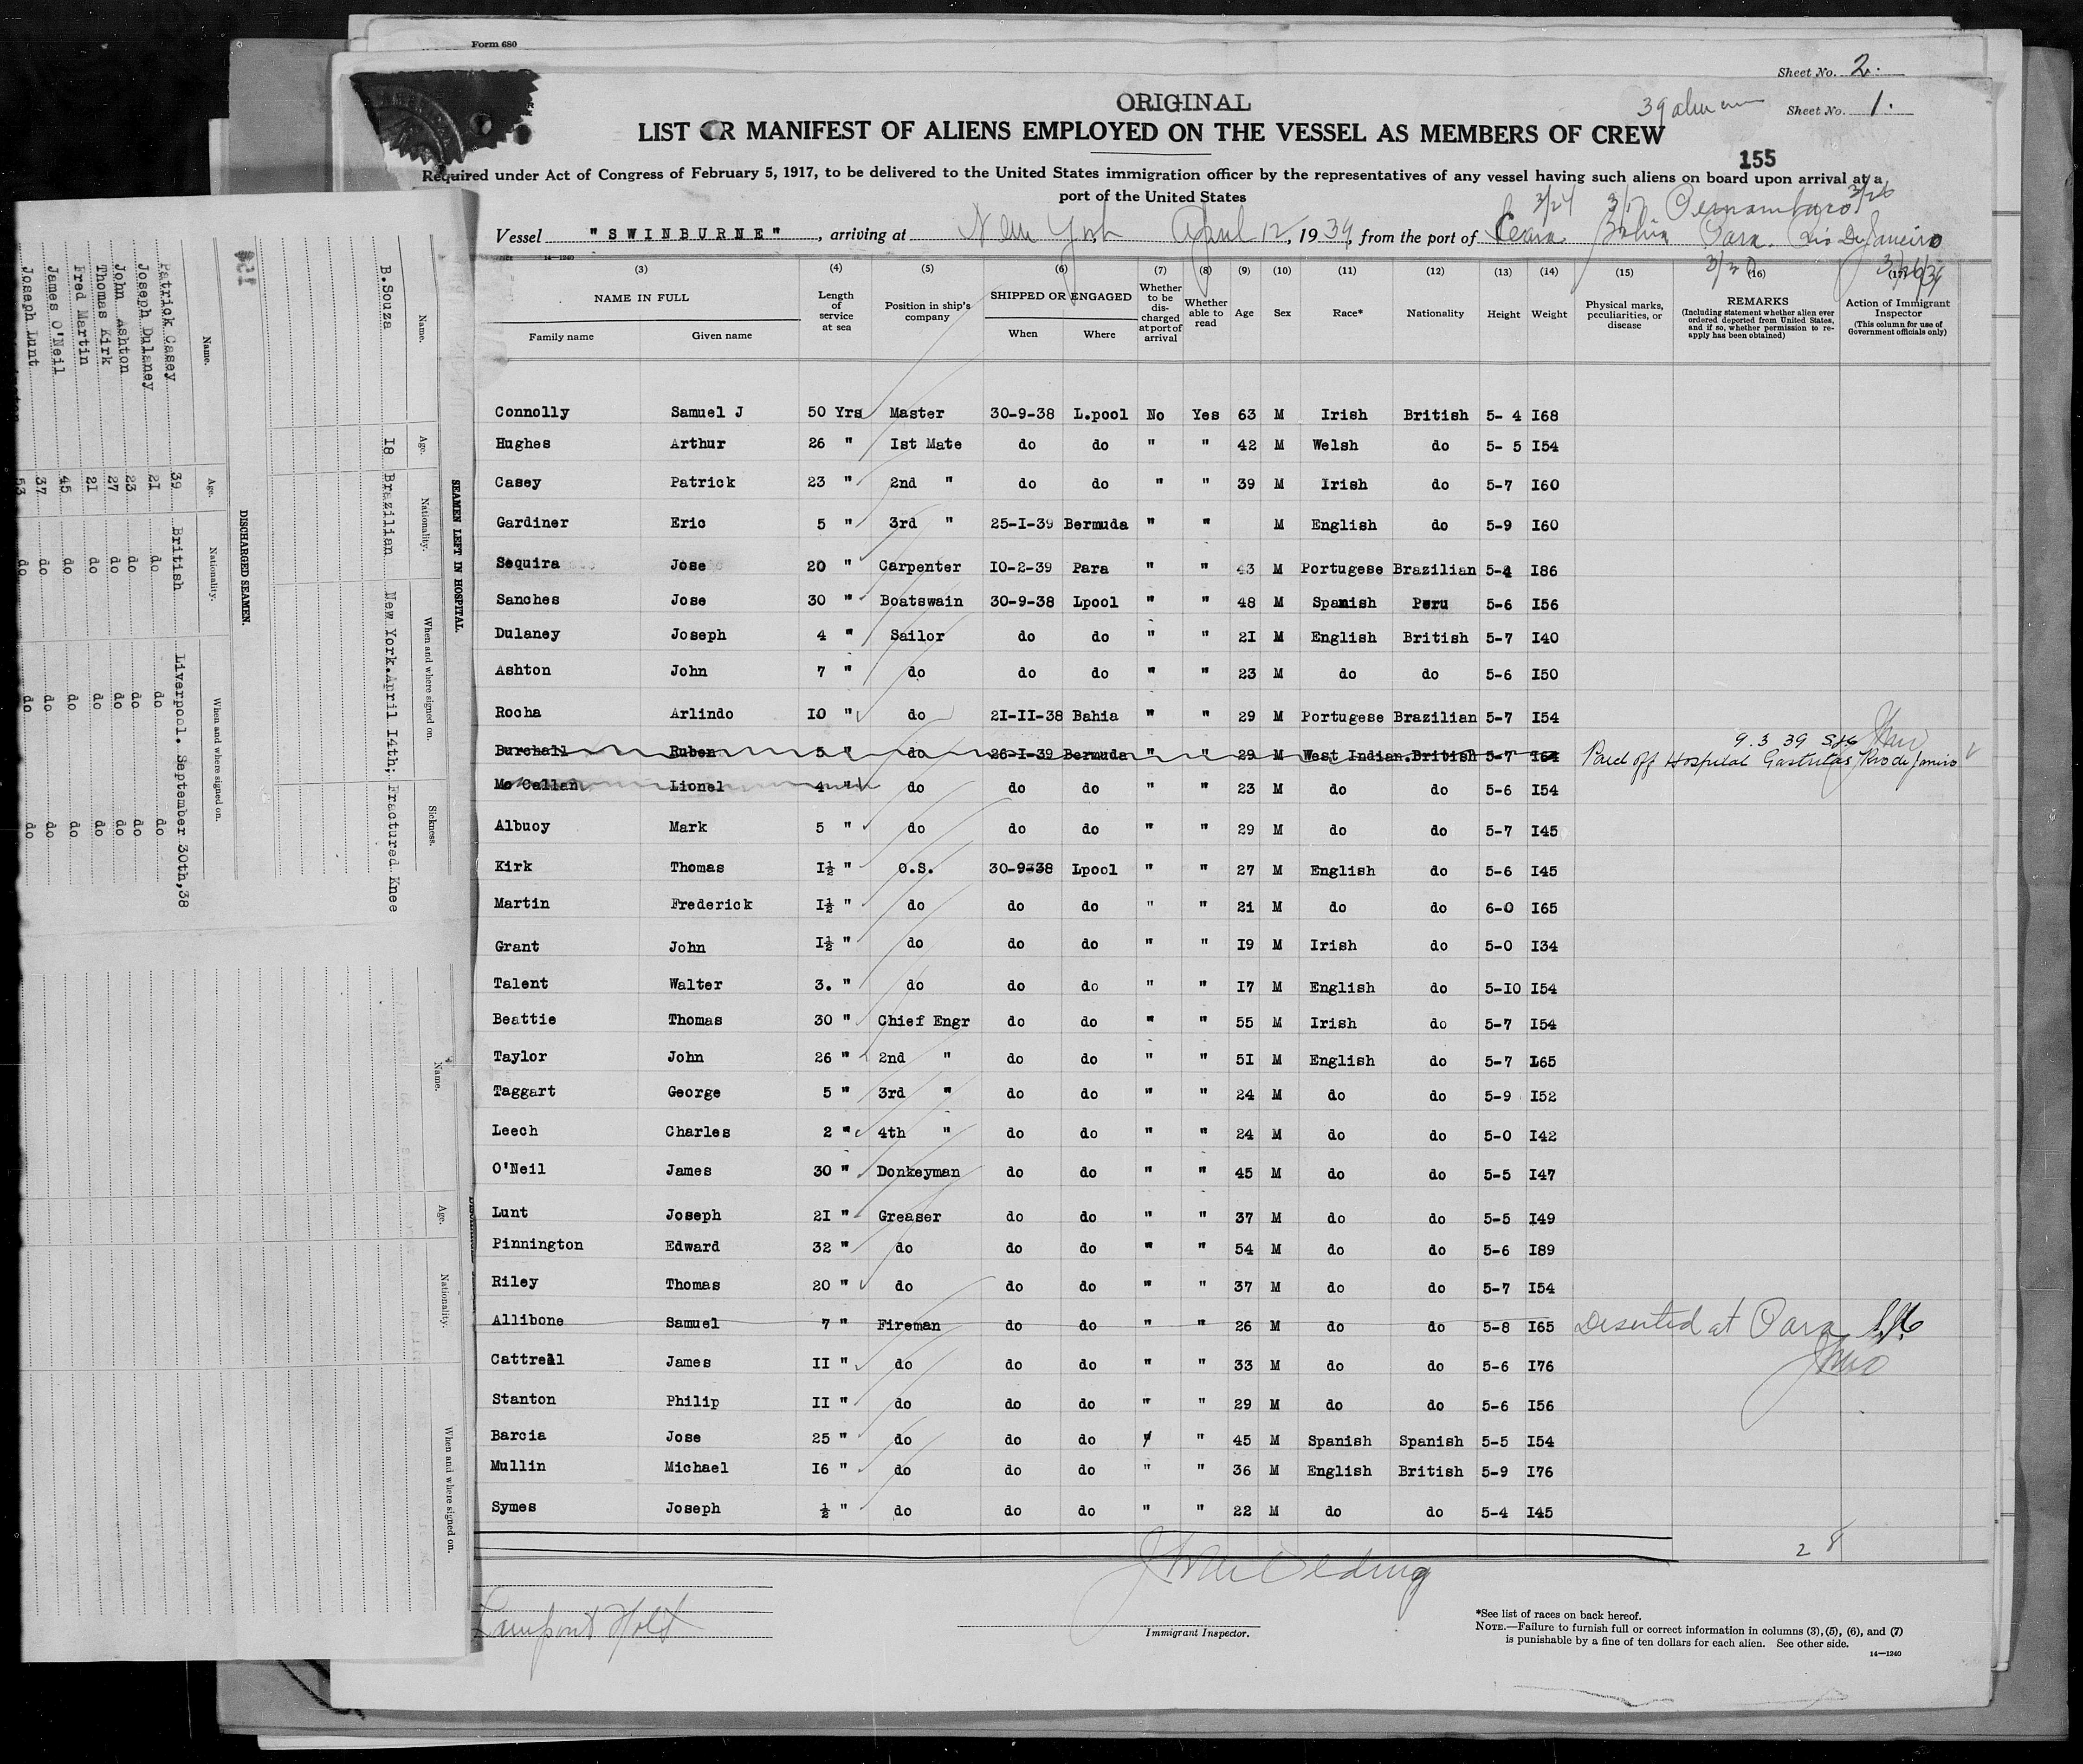 Form 680
Sheet No. 2.
ORIGINAL
Sheet No. 1.
LIST OR MANIFEST OF ALIENS EMPLOYED ON THE VESSEL AS MEMBERS OF CREW
155
Required under Act of Congress of February 5, 1917, to be delivered to the United States immigration officer by the representatives of any vessel having such aliens on board upon arrival at a
port of the United States
3/24 3/17 Pernambuco 3/26
Vessel "SWINBURNE", arriving at New York April 12, 1939, from the port of Ceara Bahia Para. Rio De Janeiro
14-1240
(3) (4) (5) (6) (7) (8) (9) (10) (11) (12) (13) (14) (15) (16) (17)
NAME IN FULL Length of service at sea Position in ship's company SHIPPED OR ENGAGED Whether to be discharged at port of arrival Whether able to read Age Sex Race* Nationality Height Weight Physical marks, peculiarities, or disease REMARKS (Including statement whether alien ever ordered deported from United States, and if so, whether permission to re-apply has been obtained) Action of Immigrant Inspector (This column for use of Government officials only)
Family name Given name When Where
Connolly Samuel J 50 Yrs Master 30-9-38 L.pool No Yes 63 M Irish British 5- 4 I68
Hughes Arthur 26 " Ist Mate do do " " 42 M Welsh do 5- 5 I54
Casey Patrick 23 " 2nd " do do " " 39 M Irish do 5-7 I60
Gardiner Eric 5 " 3rd " 25-I-39 Bermuda " " M English do 5-9 I60
Sequira Jose 20 " Carpenter IO-2-39 Para " " 43 M Portugese Brazilian 5-4 I86
Sanches Jose 30 " Boatswain 30-9-38 Lpool " " 48 M Spanish Peru 5-6 I56
Dulaney Joseph 4 " Sailor do do " " 2I M English British 5-7 I40
Ashton John 7 " do do do " " 23 M do do 5-6 I50
Rocha Arlindo IO " do 2I-II-38 Bahia " " 29 M Portugese Brazilian 5-7 I54
9.3 39
Burchall Ruben 5 " do 26-I-39 Bermuda " " 29 M West Indian.British 5-7 I64 Paid off Hospital Gastritas, Rio de Janiro
Mc Callan Lionel 4 " do do do " " 23 M do do 5-6 I54
Albuoy Mark 5 " do do do " " 29 M do do 5-7 I45
Kirk Thomas I½ " O.S. 30-9-38 Lpool " " 27 M English do 5-6 I45
Martin Frederick I½ " do do do " " 21 M do do 6-0 I65
Grant John I½ " do do do " " I9 M Irish do 5-0 I34
Talent Walter 3. " do do do " " I7 M English do 5-IO I54
Beattie Thomas 30 " Chief Engr do do " " 55 M Irish do 5-7 I54
Taylor John 26 " 2nd " do do " " 5I M English do 5-7 I65
Taggart George 5 " 3rd " do do " " 24 M do do 5-9 I52
Leech Charles 2 " 4th " do do " " 24 M do do 5-0 I42
O'Neil James 30 " Donkeyman do do " " 45 M do do 5-5 I47
Lunt Joseph 2I " Greaser do do " " 37 M do do 5-5 I49
Pinnington Edward 32 " do do do " " 54 M do do 5-6 I89
Riley Thomas 20 " do do do " " 37 M do do 5-7 I54
Allibone Samuel 7 " Fireman do do " " 26 M do do 5-8 I65 Deserted at Para
Cattrell James II " do do do " " 33 M do do 5-6 I76
Stanton Philip II " do do do " " 29 M do do 5-6 I56
Barcia Jose 25 " do do do " " 45 M Spanish Spanish 5-5 I54
Mullin Michael I6 " do do do " " 36 M English British 5-9 I76
Symes Joseph ½ " do do do " " 22 M do do 5-4 I45
28
Lamport Holt
Immigrant Inspector.
*See list of races on back hereof.
NOTE.—Failure to furnish full or correct information in columns (3), (5), (6), and (7)
is punishable by a fine of ten dollars for each alien. See other side.
14-1240
SEAMEN LEFT IN HOSPITAL.
Name. Age. Nationality. When and where signed on. Sickness.
B.Souza I8 Brazilian New York.April I4th; Fractured Knee
DISCHARGED SEAMEN.
Name. Age. Nationality. When and where signed on.
Patrick Casey 39 British Liverpool. September 30th,38
Joseph Dulaney 2I do do do
John Ashton 23 do do do
Thomas Kirk 27 do do do
Fred Martin 2I do do do
James O'Neil 45 do do do
Joseph Lunt 37 do do do
53 do do do
Name. Age. Nationality. When and where signed on.